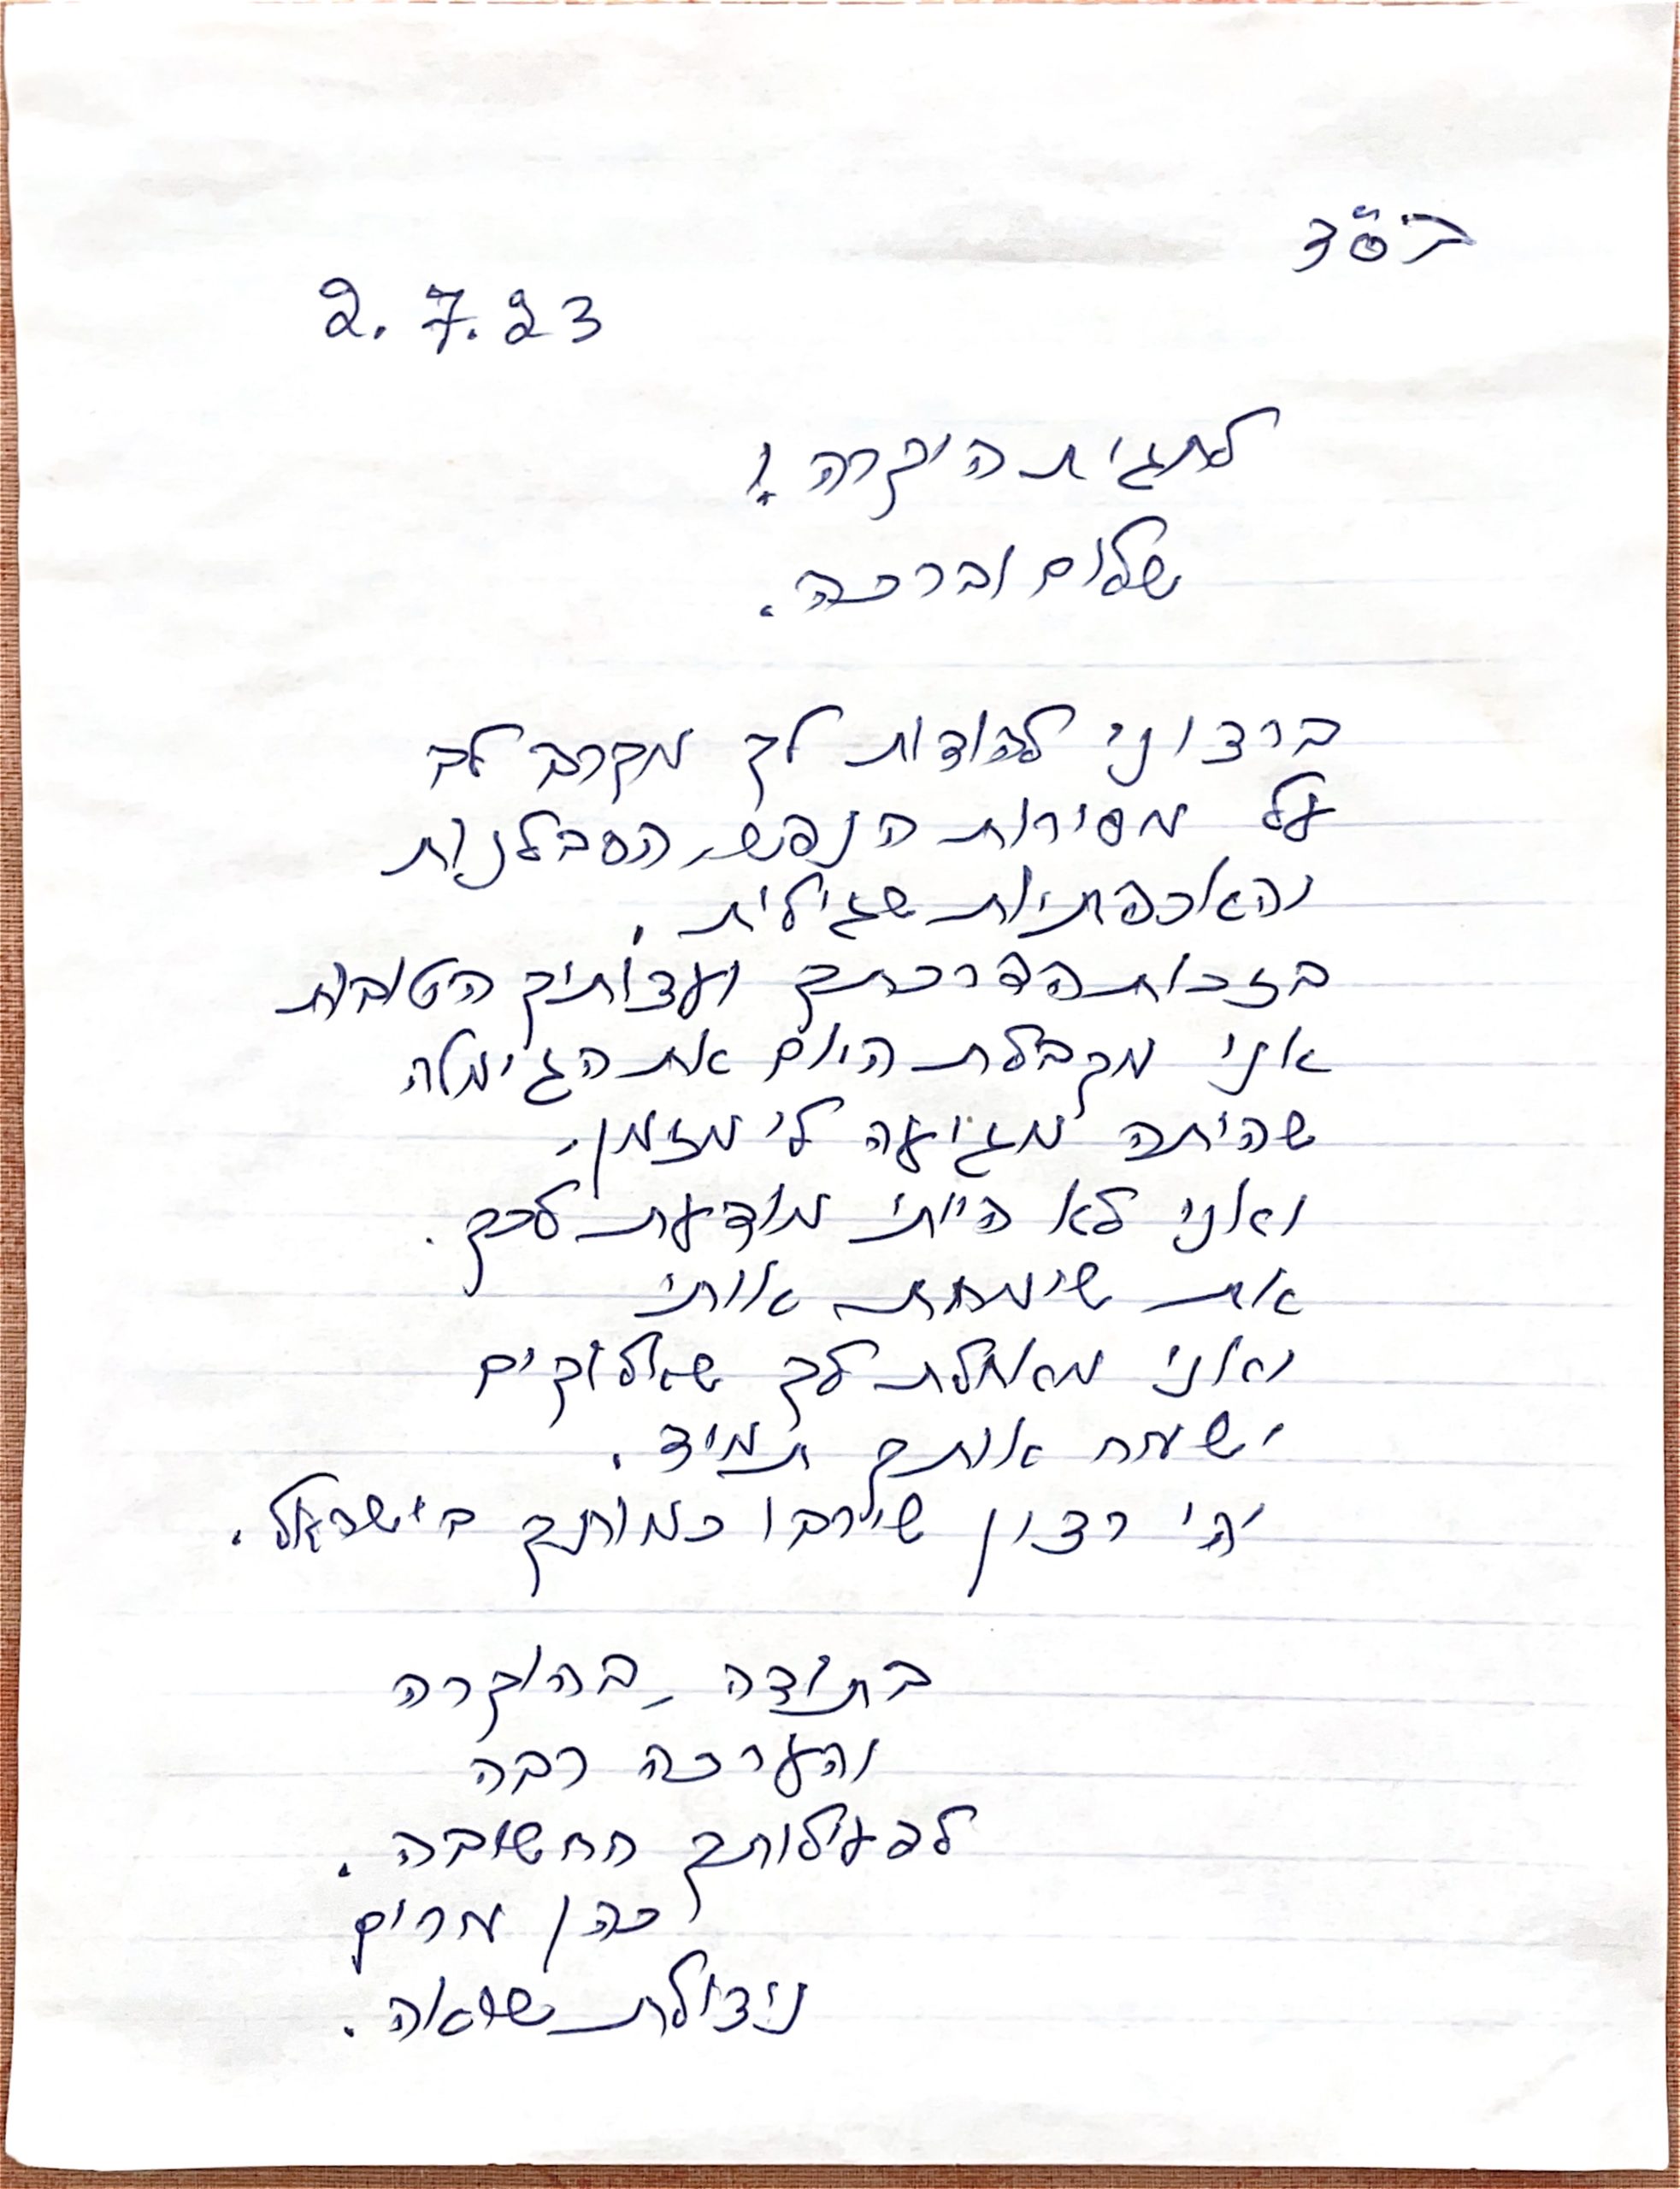 בס"ד
2.7.23
לתגית היקרה!
שלום וברכה.
ברצוני להודות לך מקרב לב
על מסירות הנפש, הסבלנות
והאכפתיות שגילית.
בזכות הדרכתך ועצותיך הטובות
אני מקבלת היום את הגימלה
שהיתה מגיעה לי מזמן,
ואני לא הייתי מודעת לכך.
את שימחת אותי
ואני מאחלת לך שאלוקים
ישמח אותך תמיד.
יהי רצון שירבו כמותך בישראל.
בתודה, בהוקרה
והערכה רבה
לפעילותך החשובה.
כהן מרים
ניצולת שואה.